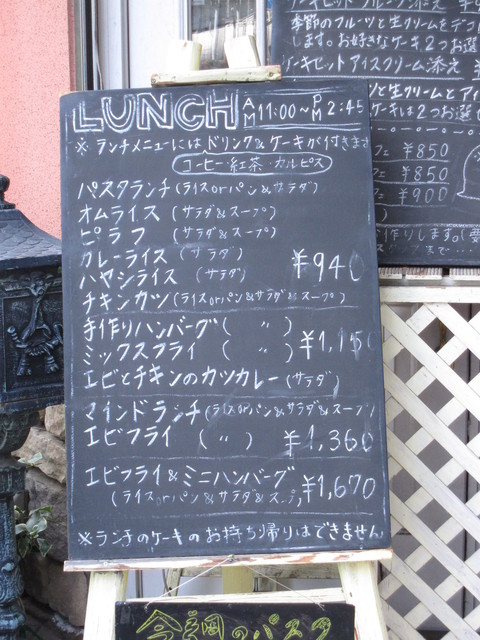 ケーキセット アイスクリーム添え ¥
LUNCH AM 11:00~PM 2:45
※ランチメニューにはドリンク&ケーキが付きます
コーヒー・紅茶・カルピス
パスタランチ(ライス or パン&サラダ)
オムライス (サラダ&スープ)
ピラフ (サラダ&スープ)
カレーライス (サラダ)
ハヤシライス (サラダ) ¥940
チキンカツ(ライス or パン&サラダ&スープ)
手作りハンバーグ( 〃 )
ミックスフライ ( 〃 ) ¥1,150
エビとチキンのカツカレー(サラダ)
マインドランチ(ライス or パン&サラダ&スープ)
エビフライ ( 〃 ) ¥1,360
エビフライ&ミニハンバーグ
(ライス or パン&サラダ&スープ) ¥1,670
※ランチのケーキのお持ち帰りはできません
今週のパスタ
季節のフルーツと生クリームをデコ
します。お好きなケーキ2つお選
と生クリームとア
ケーキは2つお選
フェ ¥850
フェ ¥850
¥900